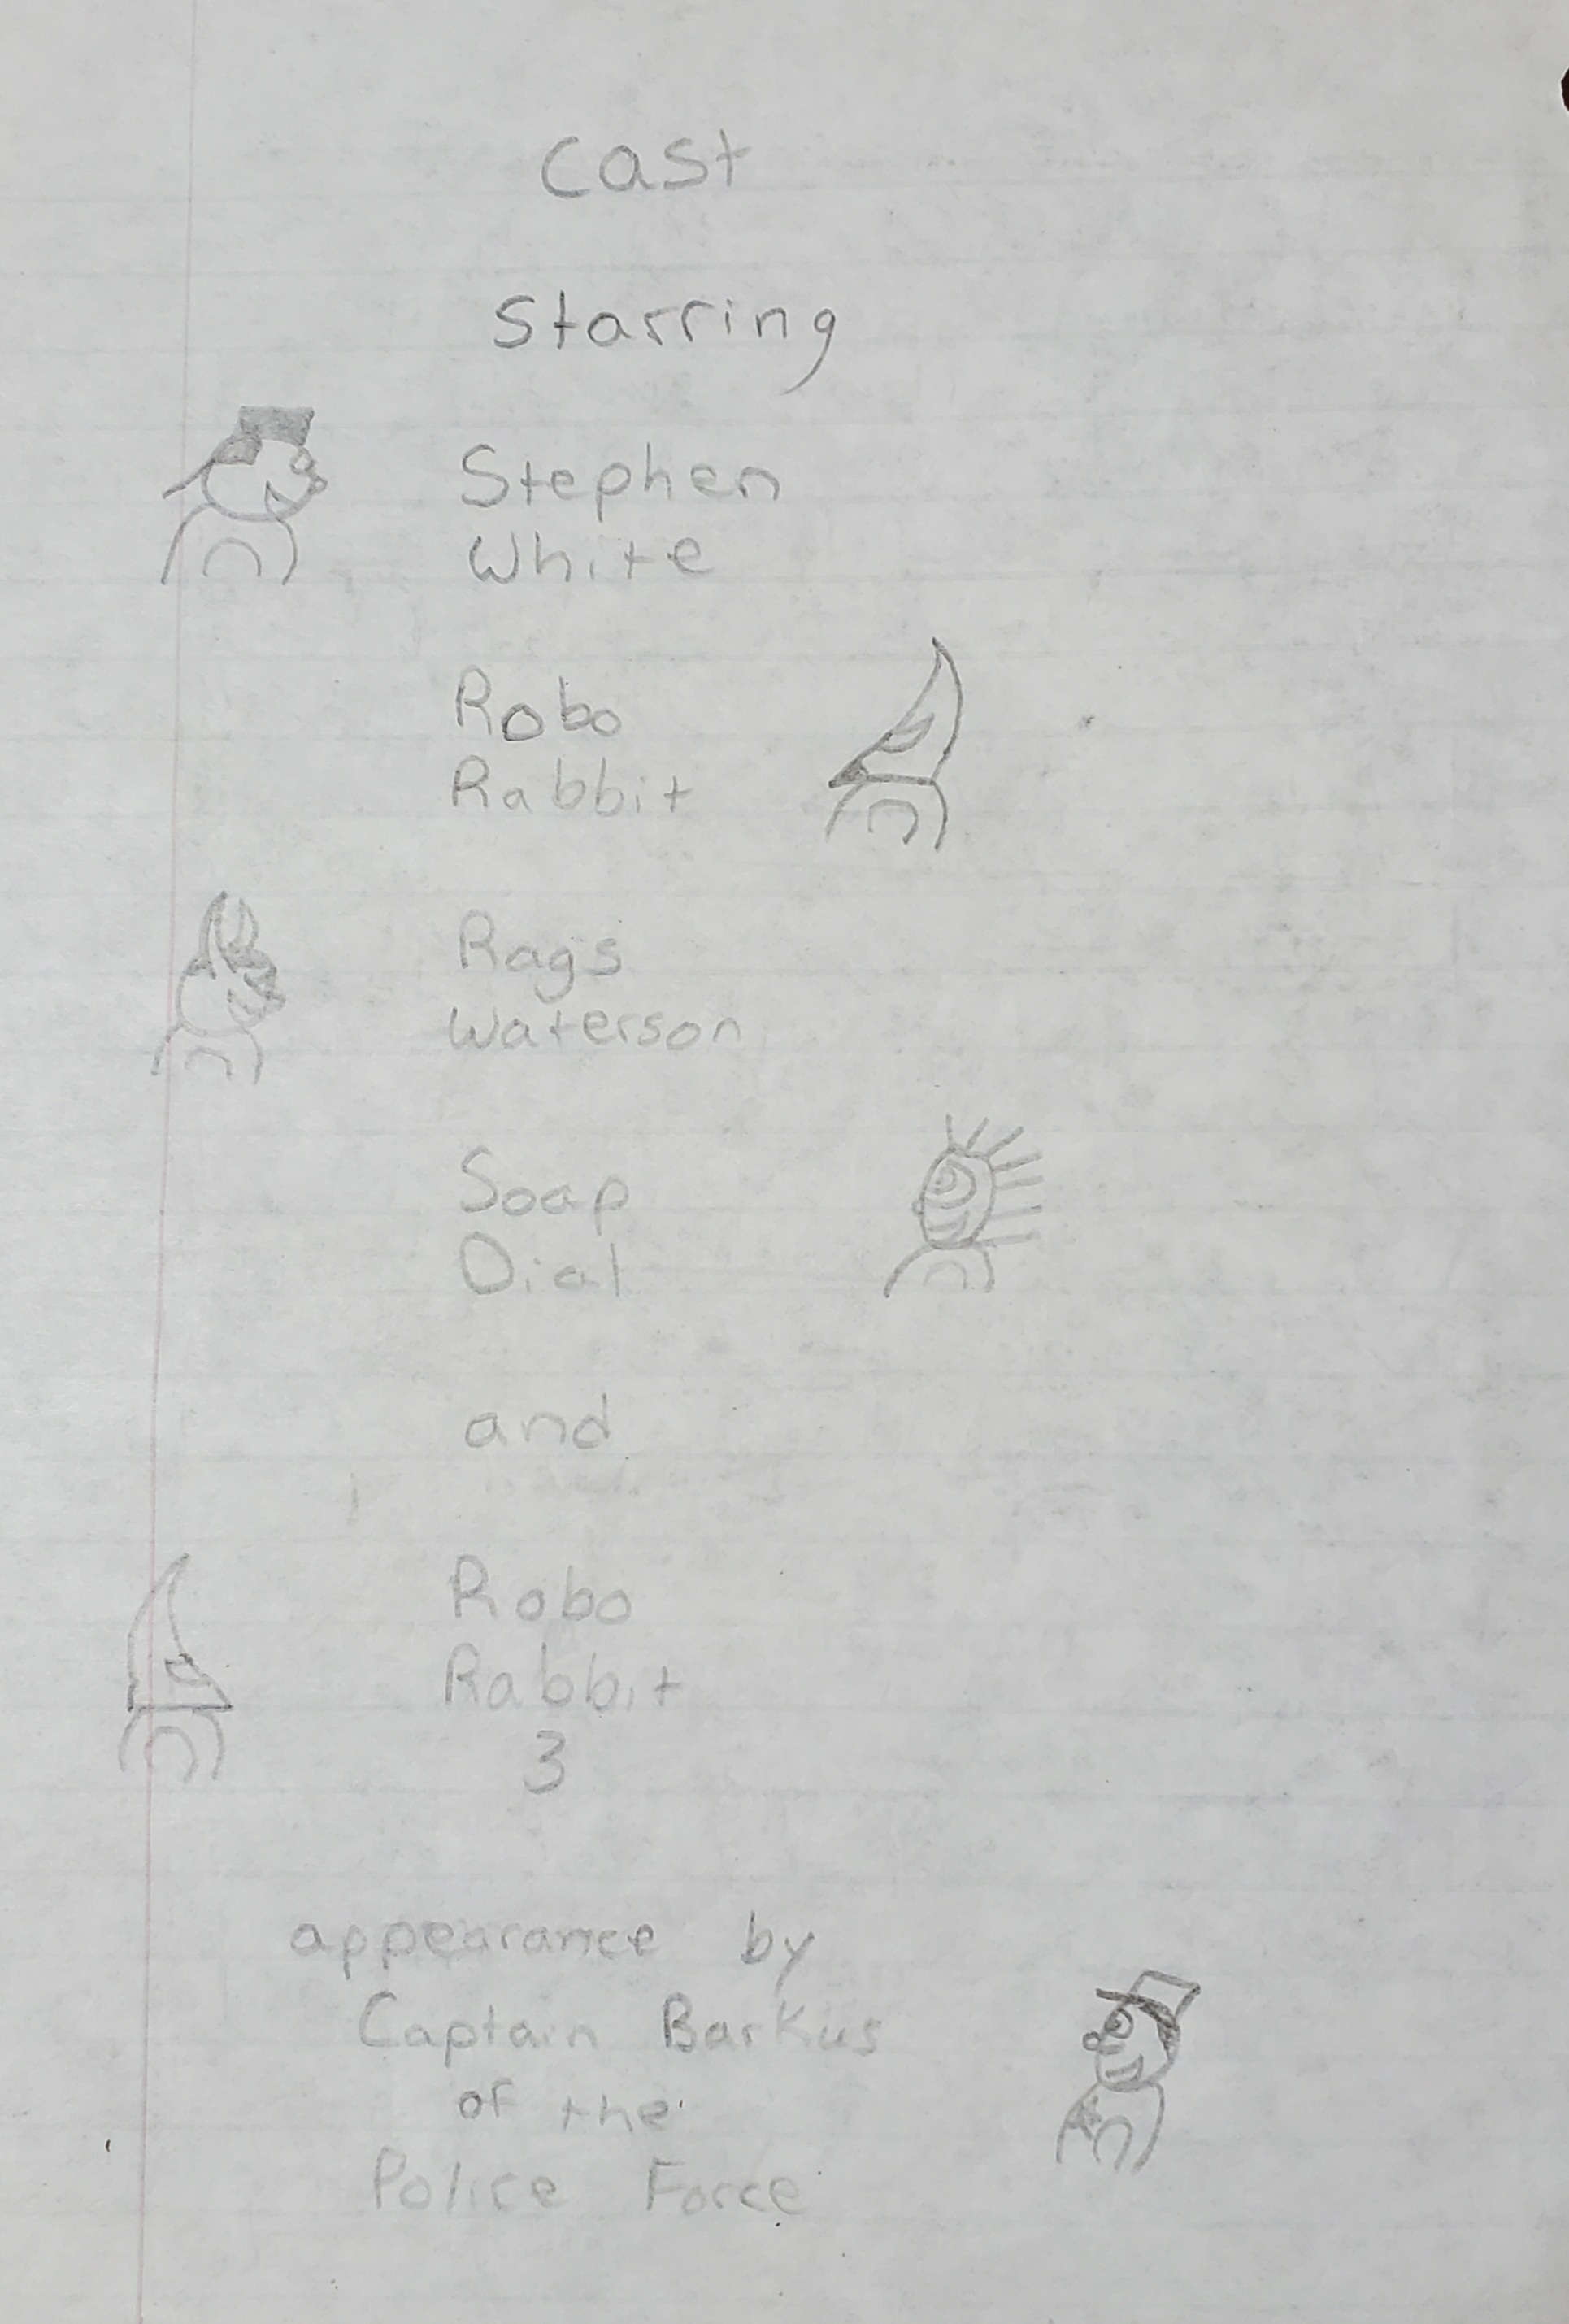 Cast
Starring
Stephen
White
Robo
Rabbit
Rags
Waterson
Soap
Dial
and
Robo
Rabbit
3
appearance by
Captain Barkus
of the
Police Force